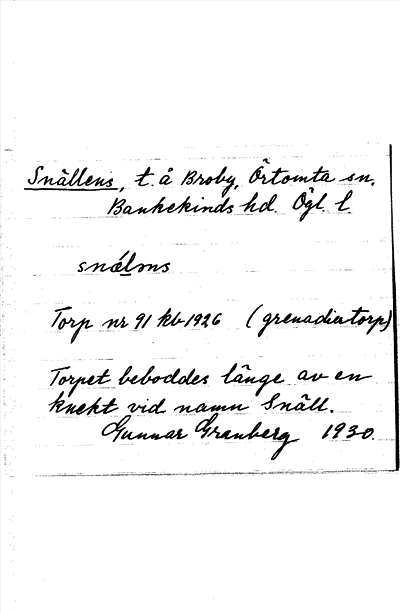 Snällens, t. å Broby, Örtomta sn.
Bankekinds hd. Ögl. l.
snǽlɔns
Torp nr 91 kb 1926 (grenadiertorp)
Torpet beboddes länge av en
knekt vid namn Snäll.
Gunnar Granberg 1930.